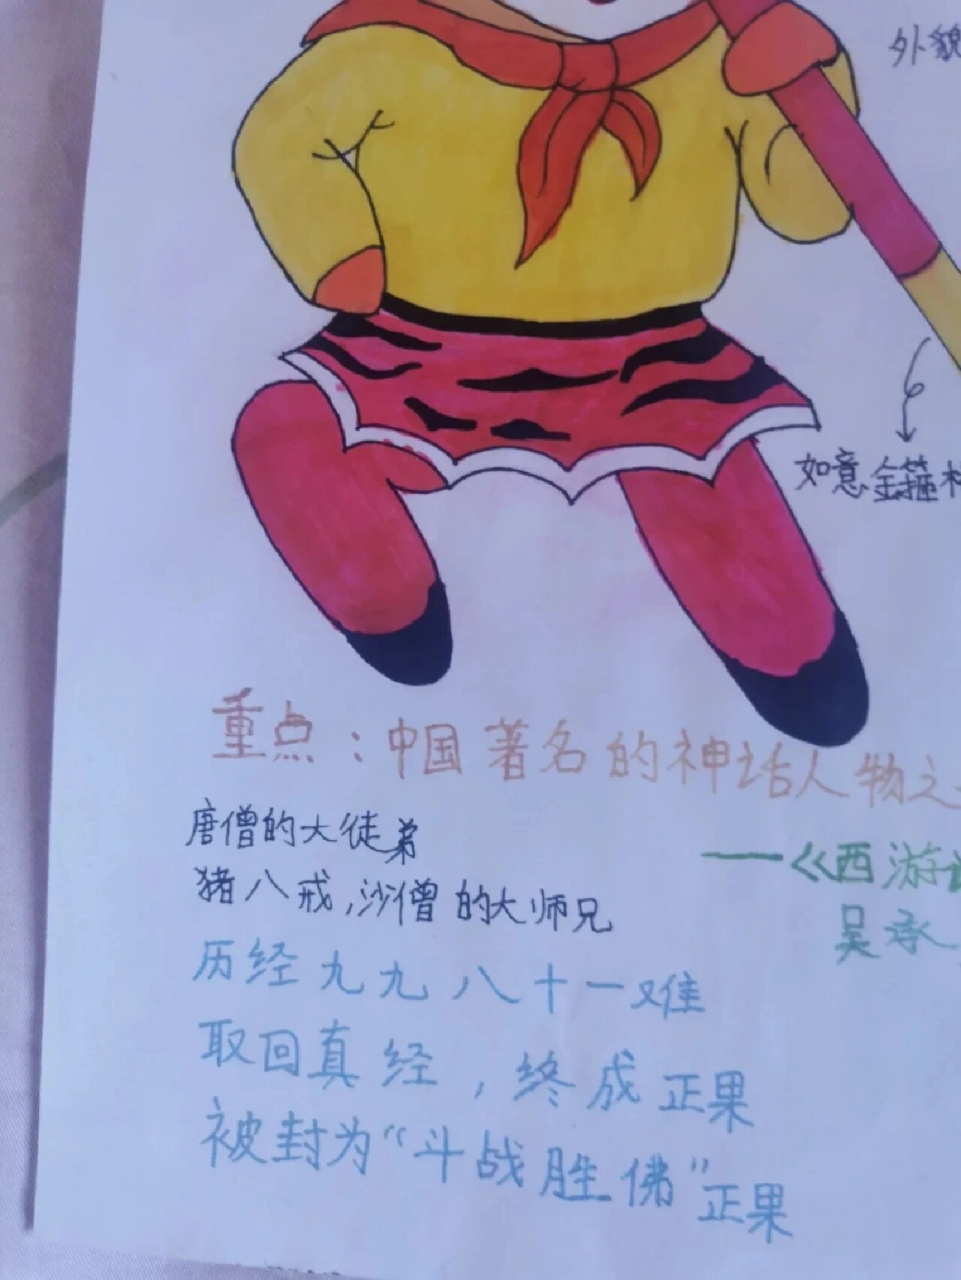 外貌
如意金箍
重点：中国著名的神话人物之
唐僧的大徒弟
——《西游
猪八戒,沙僧的大师兄
吴承
历经九九八十一难
取回真经，终成正果
被封为“斗战胜佛”正果